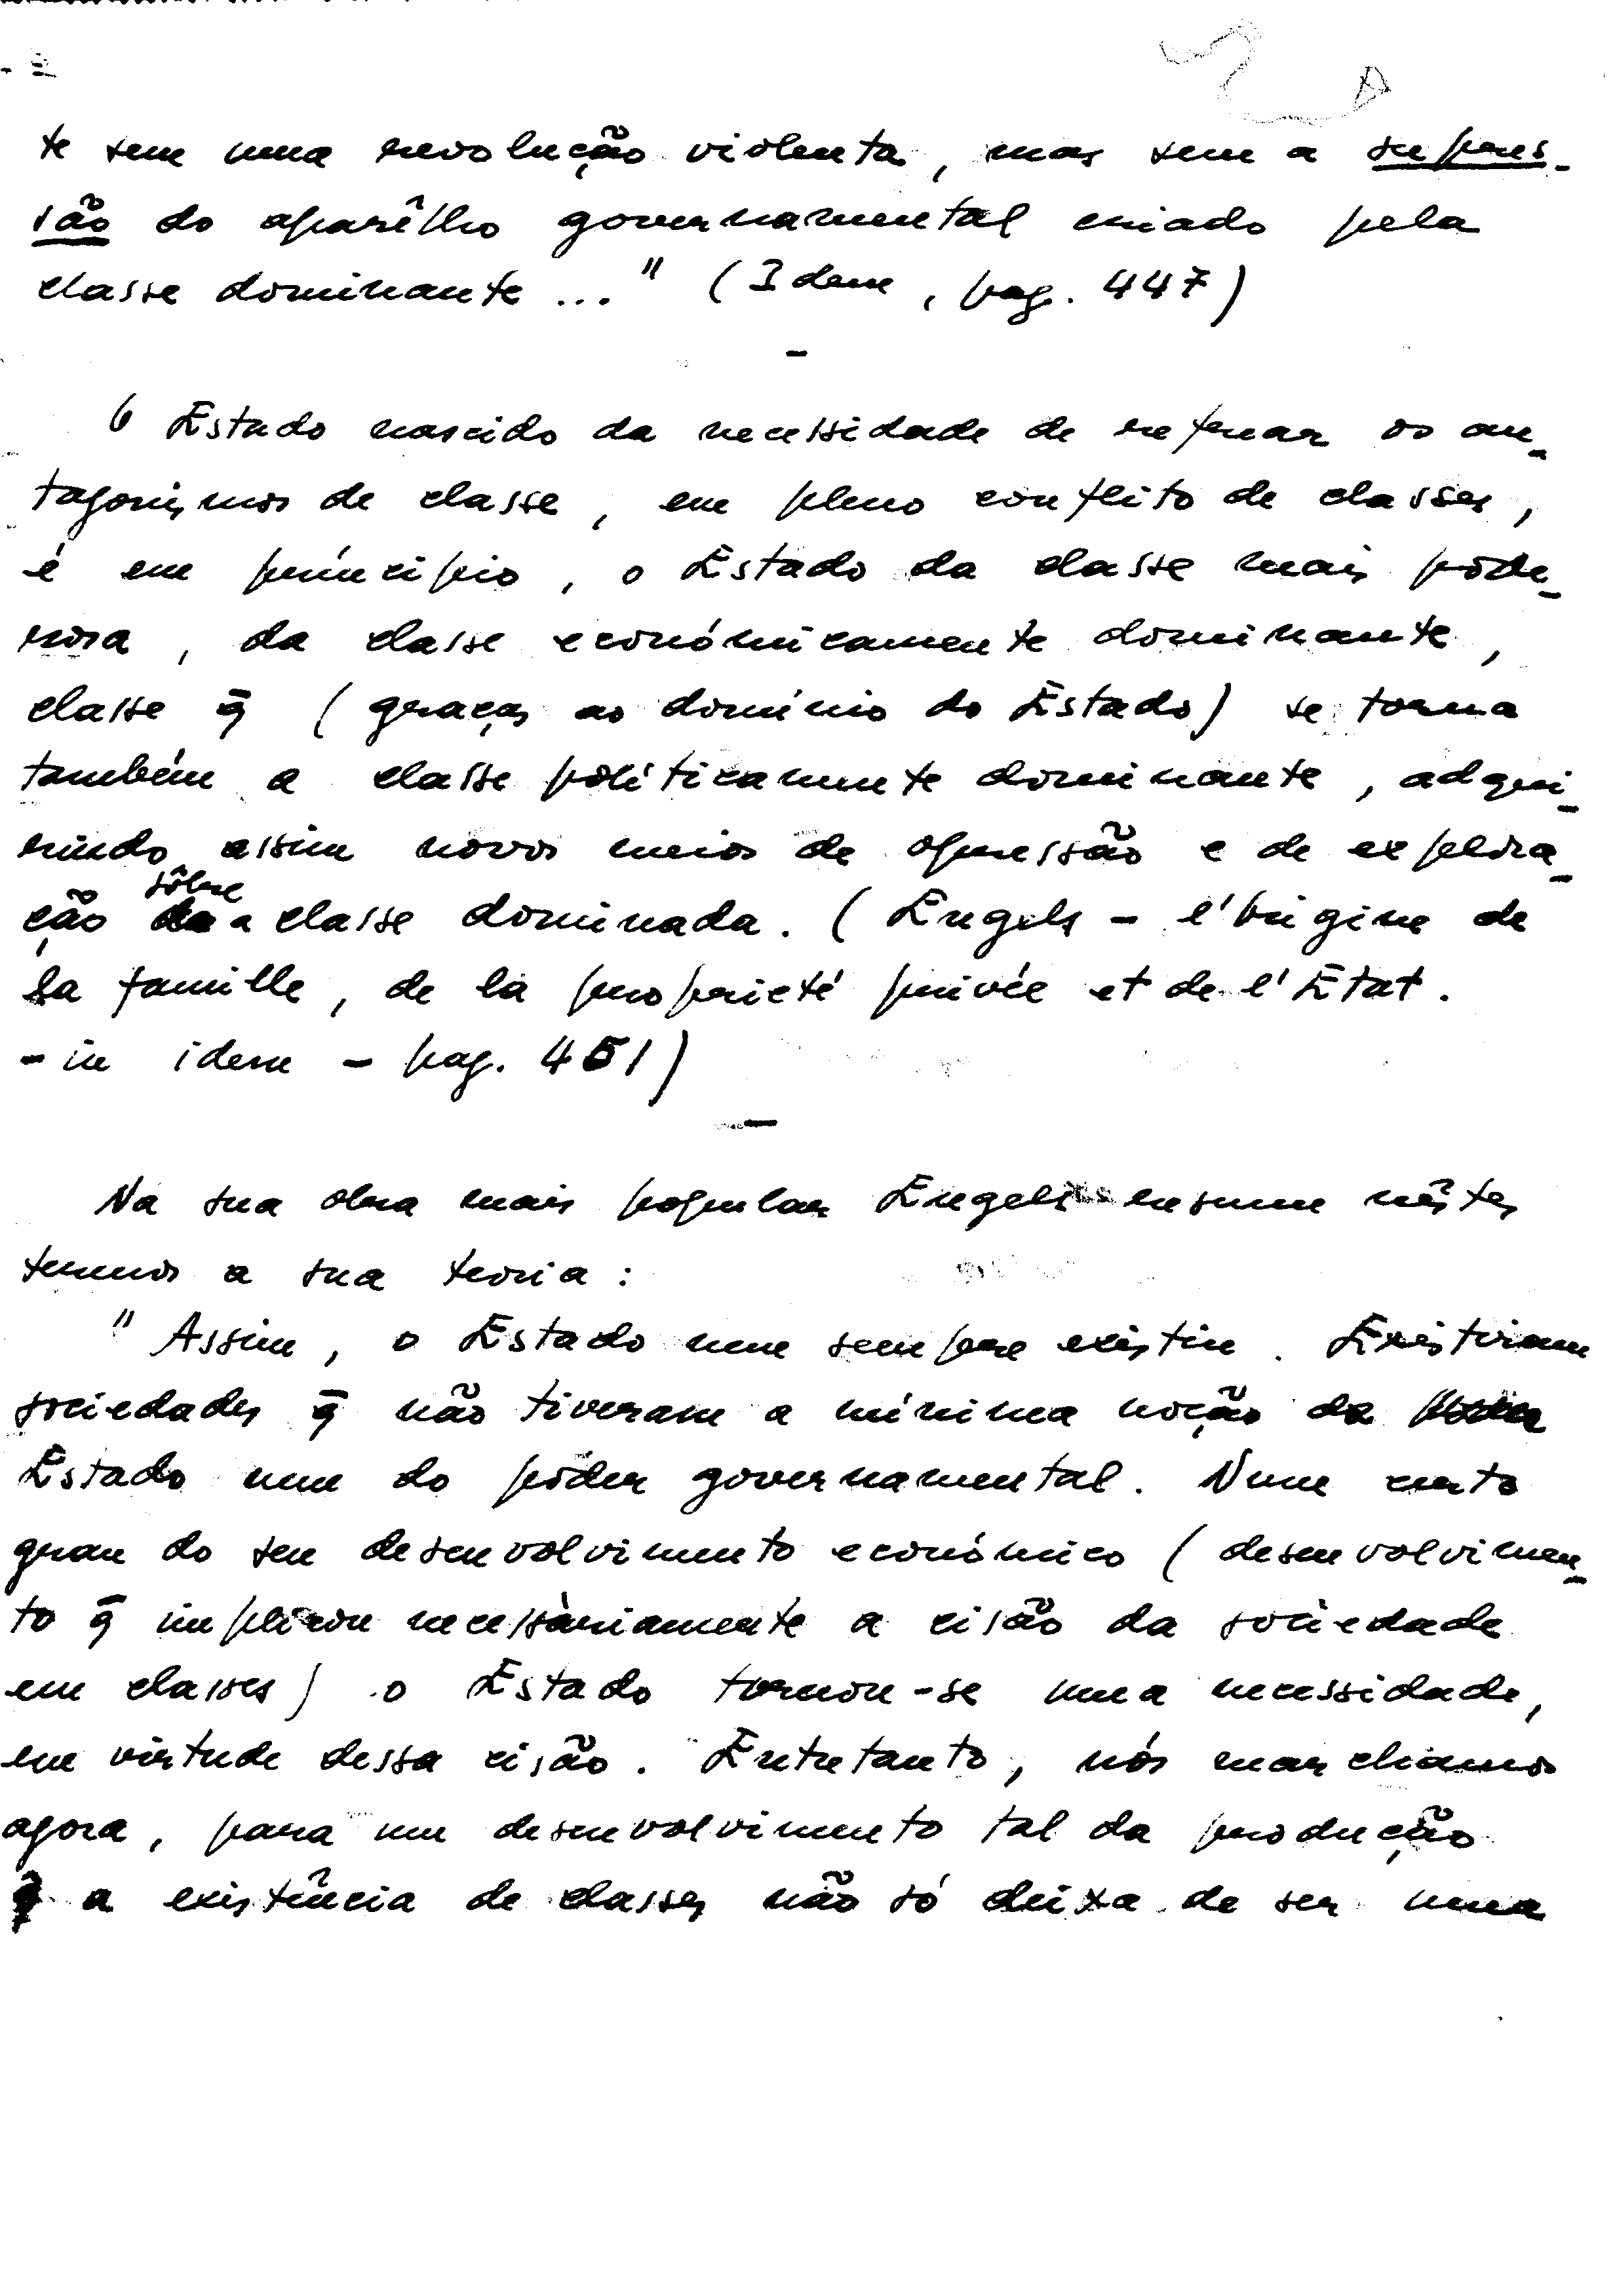 te sem uma revolução violenta, mas sem a supres-
são do aparêlho governamental criado pela
classe dominante ..." (Idem, pag. 447)
-
O Estado nascido da necessidade de refrear os an-
tagonismos de classe, em pleno conflito de classes,
é em princípio, o Estado da classe mais pode-
rosa, da classe econòmicamente dominante,
classe q̄ (graças ao domínio do Estado) se torna
também a classe políticamente dominante, adqui-
rindo assim novos meios de opressão e de explora-
ção sôbre a classe dominada. (Engels - l'origine de
la famille, de la proprieté privée et de l'Etat.
- in idem - pag. 451)
-
Na sua obra mais popular Engels resume nêstes
termos a sua teoria:
" Assim, o Estado nem sempre existiu. Existiram
sociedades q̄ não tiveram a mínima noção do
Estado nem do pôder governamental. Num certo
grau do seu desenvolvimento económico (desenvolvimen-
to q̄ implicou necessàriamente a cisão da sociedade
em classes) o Estado tornou-se uma necessidade,
em virtude dessa cisão. Entretanto, nós marchamos
agora, para um desenvolvimento tal da produção
q̄ a existência de classes não só deixa de ser uma